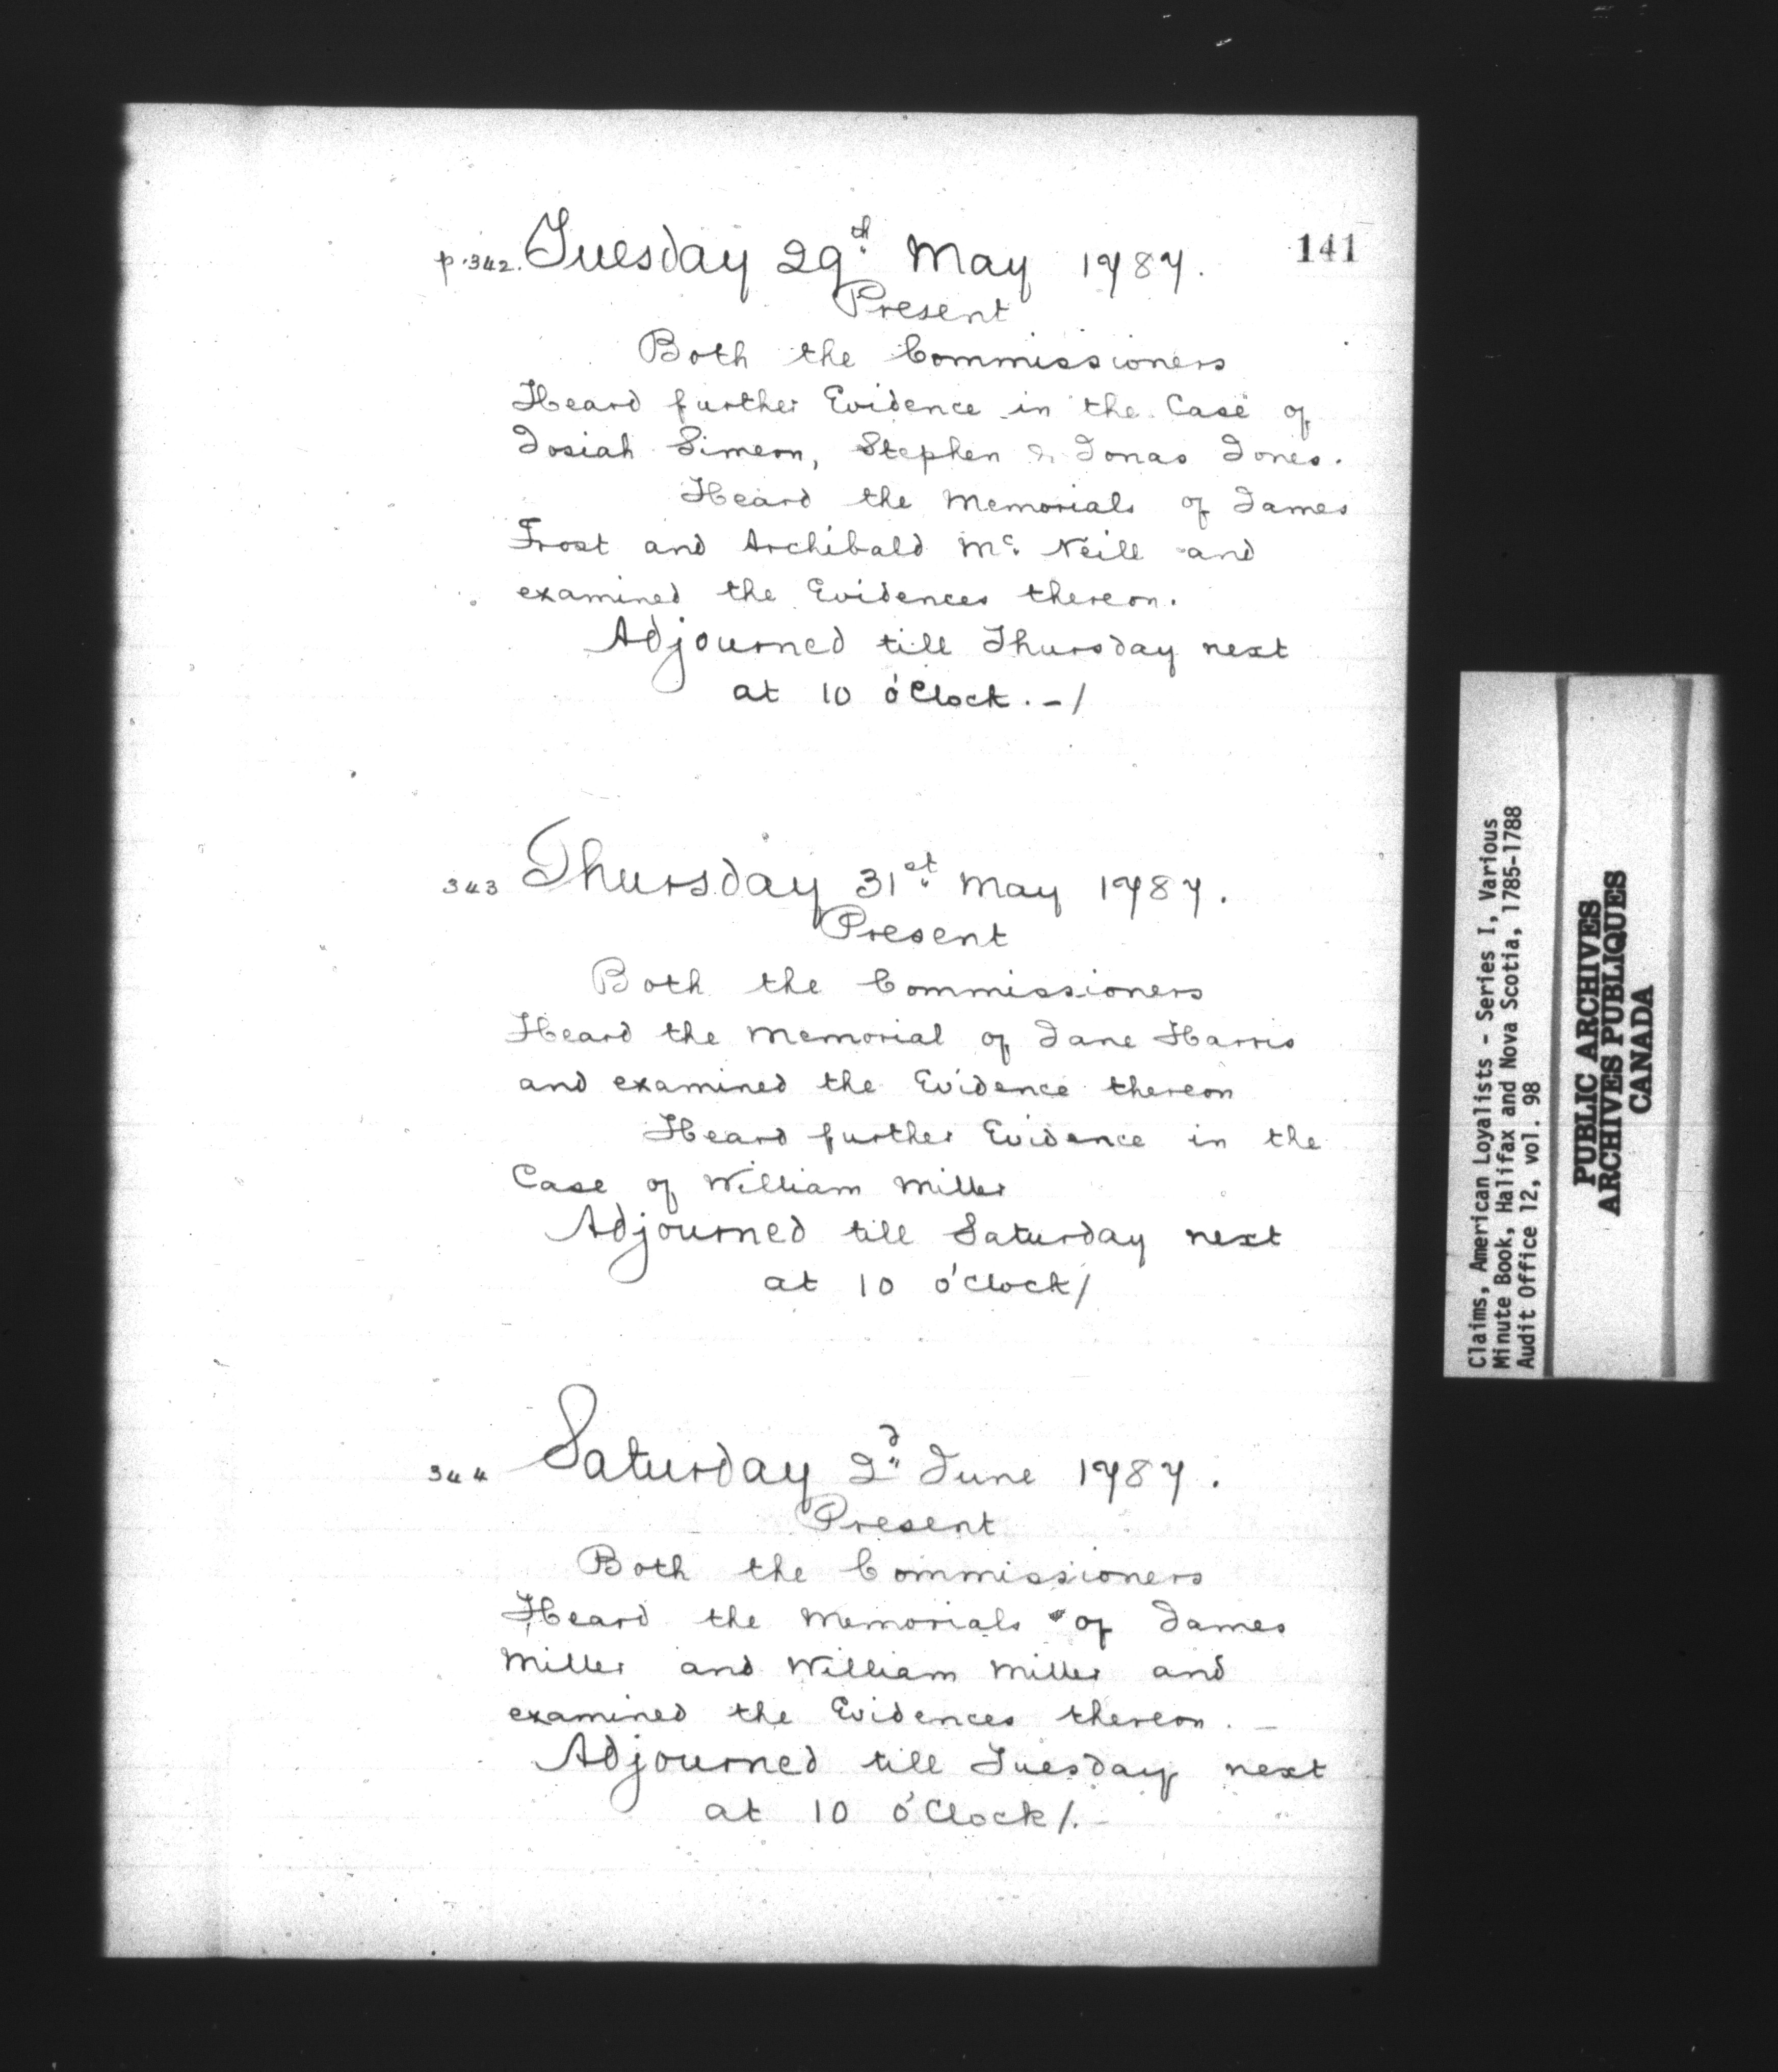 141
p. 342. Tuesday 29th May 1787.
Present
Both the Commissioners
Heard further Evidence in the Case of
Josiah Simeon, Stephen & Jonas Jones.
Heard the Memorials of James
Frost and Archibald Mc. Neill and
examined the Evidences thereon.
Adjourned till Thursday next
at 10 o'Clock. - /
343 Thursday 31st May 1787.
Present
Both the Commissioners
Heard the Memorial of Jane Harris
and examined the Evidence thereon
Heard further Evidence in the
Case of William Miller
Adjourned till Saturday next
at 10 o'clock /
344 Saturday 2d June 1787.
Present
Both the Commissioners
Heard the Memorials of James
Miller and William Miller and
examined the Evidences thereon. -
Adjourned till Tuesday next
at 10 o'Clock /. -
Claims, American Loyalists - Series I, Various
Minute Book, Halifax and Nova Scotia, 1785-1788
Audit Office 12, vol. 98
PUBLIC ARCHIVES
ARCHIVES PUBLIQUES
CANADA